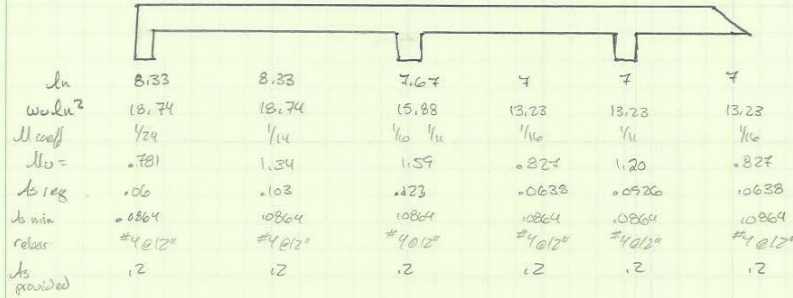 ln 8.33 8.33 7.67 7 7 7
wu ln² 18.74 18.74 15.88 13.23 13.23 13.23
M coeff 1/24 1/14 1/10 1/11 1/16 1/11 1/16
Mu = .781 1.34 1.59 .827 1.20 .827
As req .06 .103 .123 .0638 .0926 .0638
As min .0864 .0864 .0864 .0864 .0864 .0864
rebar #4@12" #4@12" #4@12" #4@12" #4@12" #4@12"
As provided .2 .2 .2 .2 .2 .2